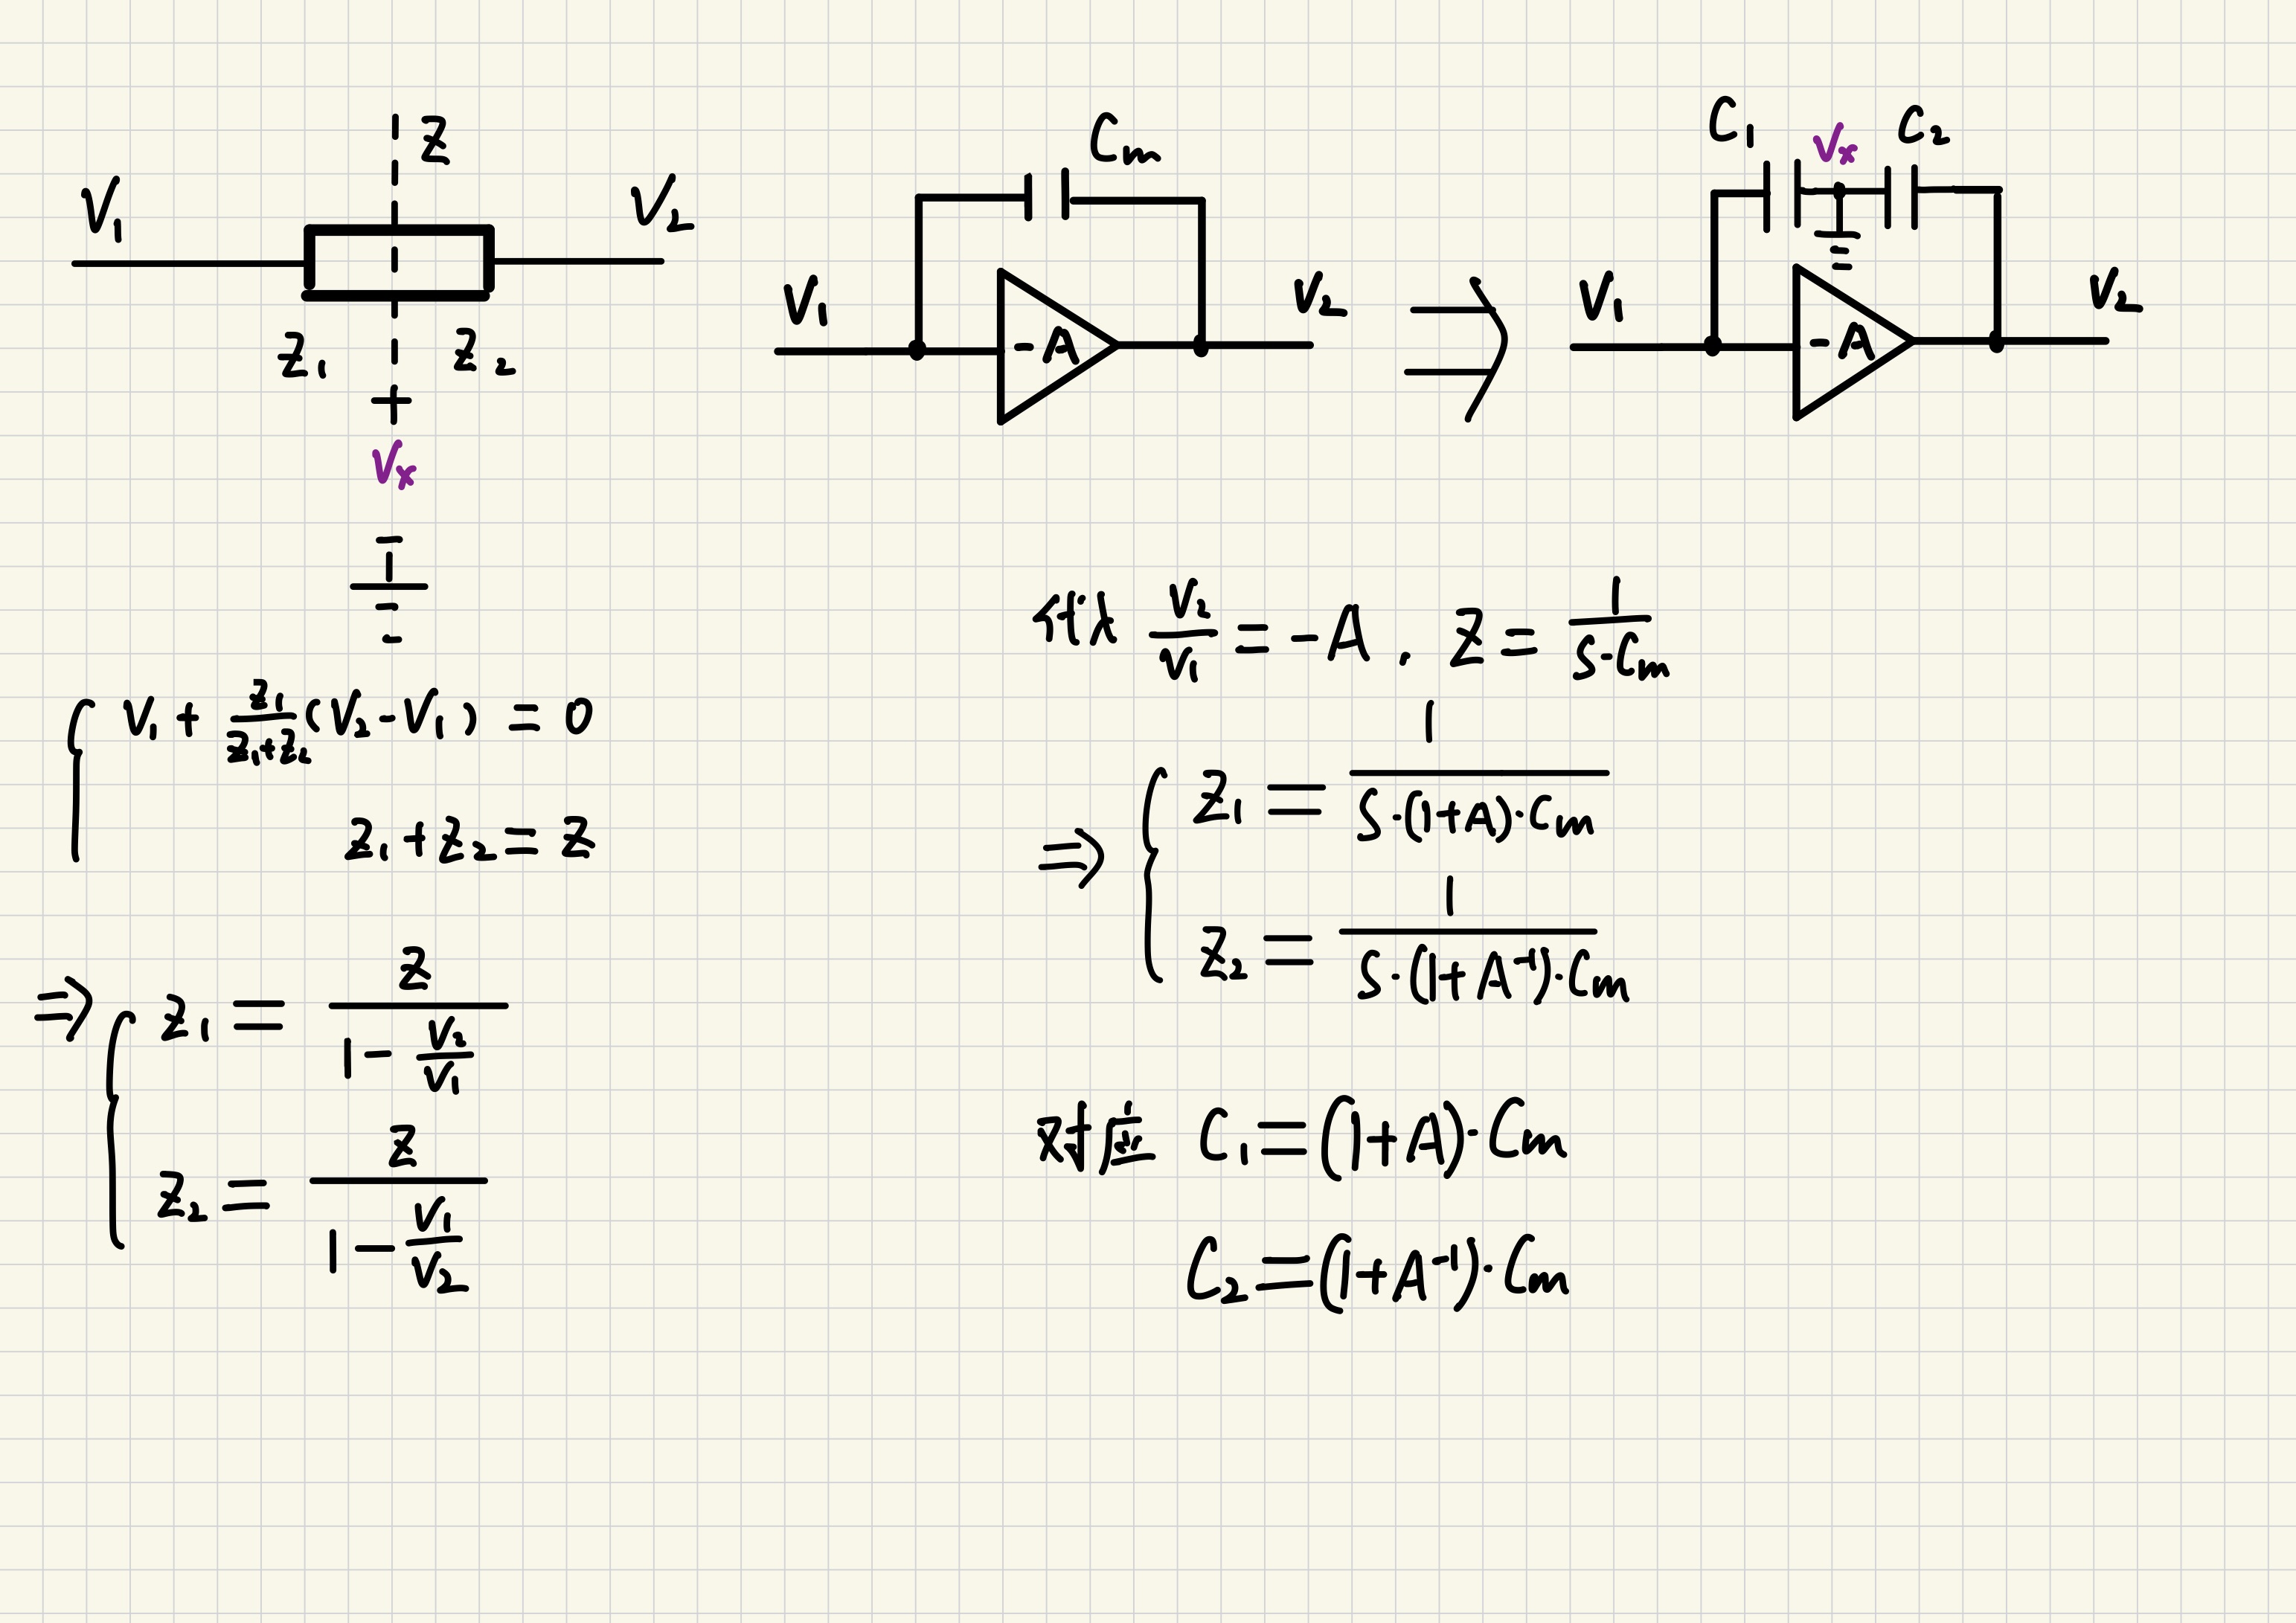 Z
V₁
V₂
Z₁
Z₂
+
Vx
-
V₁ + Z₁/(Z₁+Z₂) (V₂ - V₁) = 0
Z₁ + Z₂ = Z
⇒ Z₁ = Z/(1 - V₂/V₁)
Z₂ = Z/(1 - V₁/V₂)
Cm
V₁
-A
V₂
⇒
C₁
Vx
C₂
V₁
-A
V₂
代入 V₂/V₁ = -A , Z = 1/(S·Cm)
⇒ Z₁ = 1/(S·(1+A)·Cm)
Z₂ = 1/(S·(1+A⁻¹)·Cm)
对应 C₁ = (1+A)·Cm
C₂ = (1+A⁻¹)·Cm